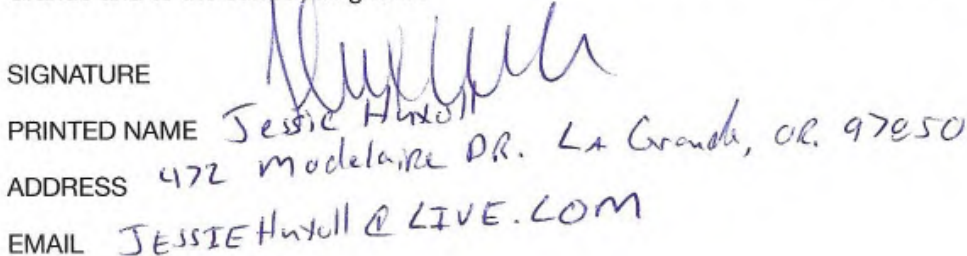 SIGNATURE
PRINTED NAME Jessie Huxoll
ADDRESS 472 Modelaire DR. LA Grande, OR. 97850
EMAIL JESSIEHuxoll@LIVE.COM